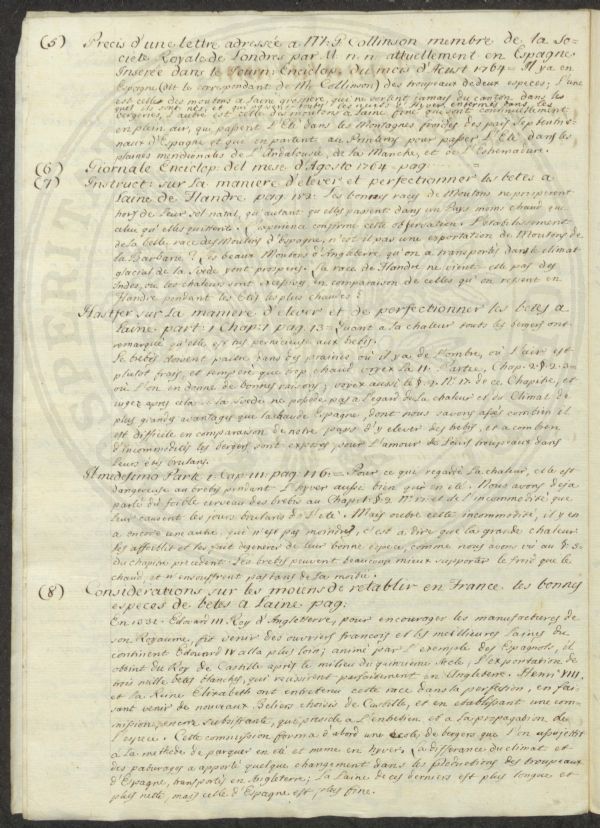 (5) Precis d'une lettre adressée a M. P. Collinson membre de la So-
cieté Royale de Londres par M. n. n. attuellement en Espagne
Inserée dans le Journ: Enciclop: du mois d'Aoust 1764 = Il y a en
Espagne (dit le correspondant de Mr Collinson) des troupeaux de deux especes; l'une
est celle des moutons a Laine grossiere, qui ne sortent jamais du canton dans les
quel ils sont nés, et qui passent les nuits d'hyver enfermés dans les
bergeries, l'autre est celle du moutons a Laine fine que vont continuellement
en plein air, qui passent l'Eté dans les Montagnes froides des pais septentrio-
naux d'Espagne et qui en partent au Printems pour passer l'Eté dans les
plaines meridionales de l'Andalousie, de la Manche, et de l'Estremadure.
(6) Giornale Enciclop: del mese d'Agosto 1764 pag:
(7) Instruct: sur La maniere d'elever et perfectionner les betes a
Laine de Flandre pag: Les bonnes races de Moutons ne prosperent
hors de Leur sol natal, qu'autant qu'elles passent dans un Pays moins chaud que
celui qu'elles quittent. L'experience confirme cette observation. L'etablissement
de la belle race des Moutons d'Espagne, n'est il pas une exportation de Moutons de
la Barbarie? Les beaux Moutons d'Angleterre, qu'on a transportés dans le climat
glacial de la Svede y ont prosperé. La race de Flandre ne vient-elle pas des
Indes, ou les chaleurs sont excessives en comparaison de celles qu'on resent en
Flandre pendant les Etés les plus chaudes?
Hastfer sur la maniere d'elever et de perfectionner les betes a
Laine part: 1 Chap: 1 pag. 13 = Quant a la chaleur touts les bergers ont
remarqué qu'elle est tres pernicieuse aux bebis.
Le bebis doivent paitre dans des prairies où il y a de l'ombre, où l'air est
plutot frais, et temperé que trop chaud voyez la II. Partie, Chap. 2. §. 2. 3=
où l'on en donne de bonnes raisons; voyez aussi le §. 2. N. 17. de ce Chapitre, et
jugez après cela si la Svede ne possede pas a l'egard de la chaleur et du Climat de
plus grands avantages que la chaude Espagne, dont nous savons assés combien il
est difficile en comparaison de notre pays d'y elever des bebis, et a combien
d'incommodités les bergers sont exposés pour l'amour de Leurs troupeaux dans
leurs etés brulans.
Il medesimo Parte 1 Cap III. pag. 146 = Pour ce que regarde La chaleur, elle est
dangereuse au brebis pendant l'hyver aussi bien qui en eté. Nous avons deja
parlé du foible cerveau des brebis au Chap. 1. § 2 N. 17. et de l'incommodité que
Leur causent les jours brulans de l'eté. Mais outre cette incommodité, il y en
a encore une autre, qui n'est pas moindre, c'est a dire que la grande chaleur
les affoiblit et les fait degenerer de leur bonne espece, comme nous avons vù au §. 3.
du chapitre precedent. Les brebis peuvent beaucoup mieux supporter le froid que le
chaud, et n'en souffrent pas tant de la moitié.
(8) Considerations sur les moiens de retablir en France les bonnes
especes de betes a Laine pag:
En 1331. Edouard III Roy d'Angleterre, pour encourager les manufactures de
son Royaume, fit venir des ouvriers francois et les meillieures laines du
continent Edouard IV alla plus loin; animé par l'exemple des Espagnols, il
obtint du Roy de Castille après le milieu du quinzieme siecle, l'exportation de
trois mille betes blanches, qui reussirent parfaitement en Angleterre. Henri VIII,
et la Reine Elizabeth ont entretenu cette race dans sa perfettion, en fai-
sant venir de nouveaux Beliers choisis de Castille, et en etablissant une com-
mission, encore subsistante, que preside a l'entretien, et a la propagation de
l'espece. Cette commission forma d'abord une ecole de bergers que l'on assujettit
a La methode de parquer en eté et meme en hyver. La differance du climat et
des paturages a apporté quelque changement dans les productions des troupeaux
d'Espagne, transportés en Angleterre; La Laine de ces derniers est plus longue et
plus nette, mais celle d'Espagne est plus fine.